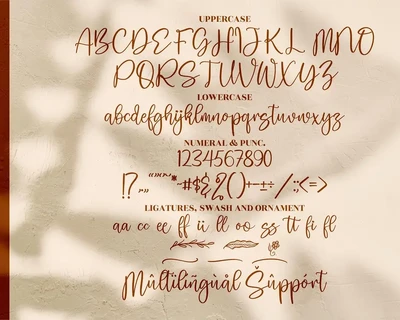 UPPERCASE
ABCDEFGHIJKL MNO
PQRSTUVWXYZ
LOWERCASE
abcdefghijklmnopqrstuvwxyz
NUMERAL & PUNC.
1234567890
LIGATURES, SWASH AND ORNAMENT
aa cc ee ff ii ll oo ss tt fi fl
Mûltilingùàl Šûppórt